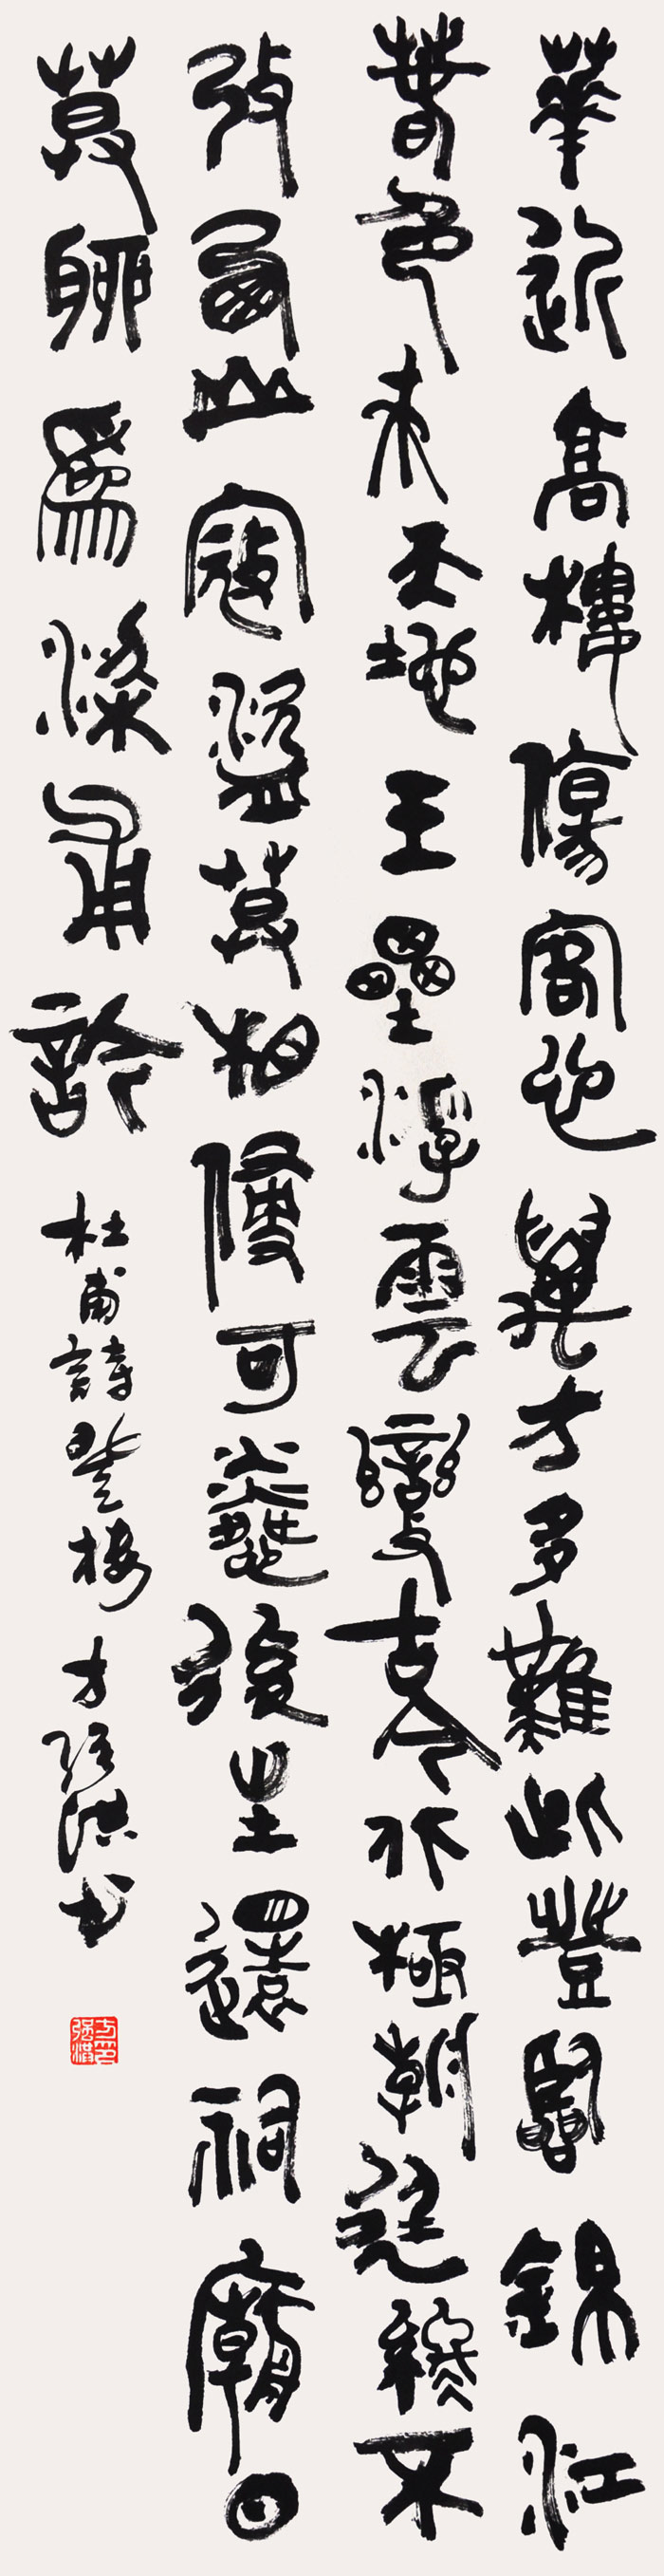 華近高樓傷客心萬方多難此登臨錦江
春色來天地玉壘浮雲變古今北極朝廷終不
改西山寇盜莫相侵可憐後主還祠廟日
莫聊爲梁甫吟 杜甫詩登樓 方強洪书